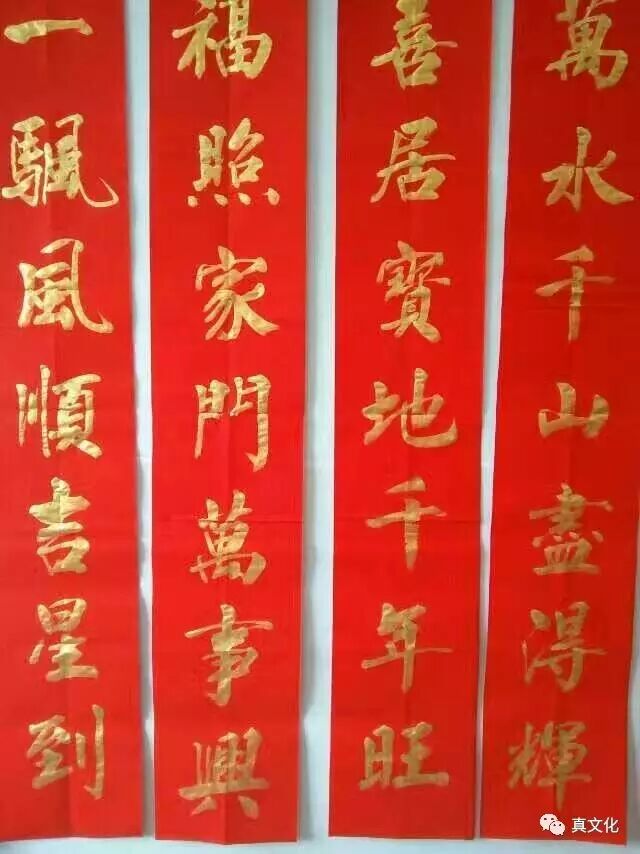 萬水千山盡得輝
喜居寶地千年旺
福照家門萬事興
一颿風順吉星到
真文化